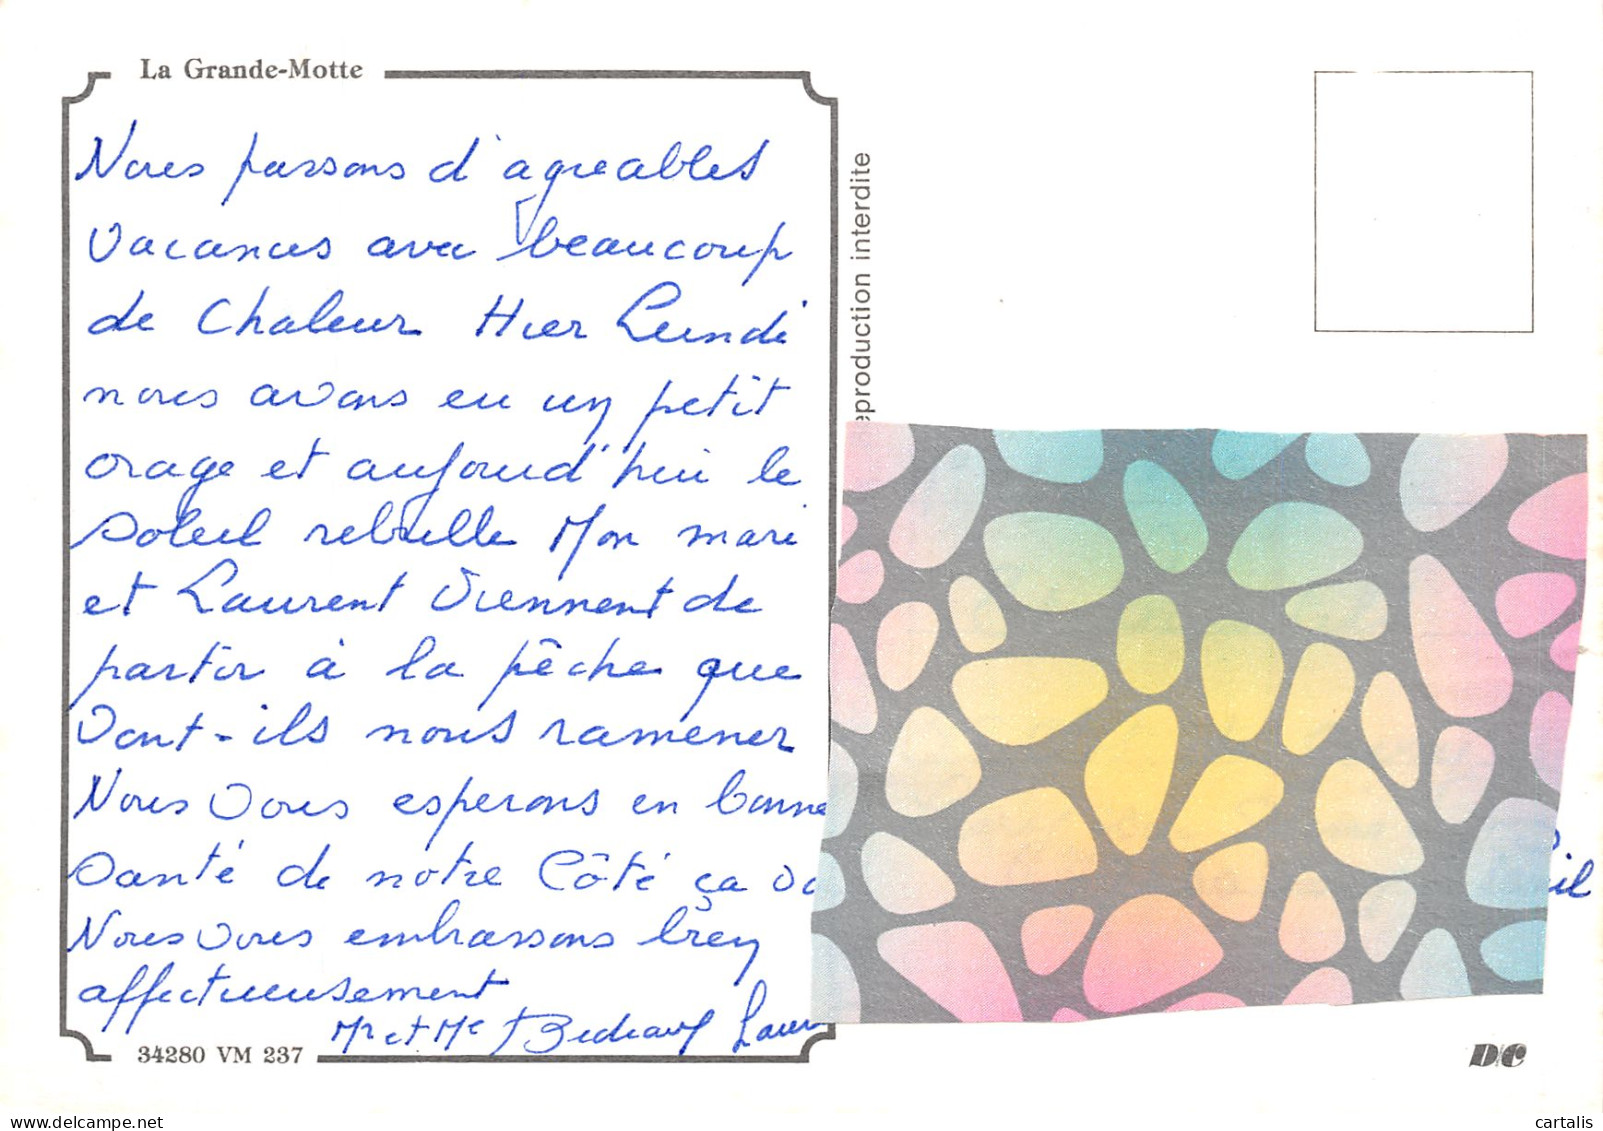 La Grande-Motte
Nous passons d'agreables
vacances avec beaucoup
de Chaleur Hier Lundi
nous avons eu un petit
orage et aujourd'hui le
soleil rebrille Mon mari
et Laurent viennent de
partir à la pêche que
vont-ils nous ramener
Nous vous esperons en bonne
santé de notre Côté ça va
Nous vous embrassons bien
affectueusement
Mr et Me
34280 VM 237
eproduction interdite
D/C
delcampe.net
cartalis